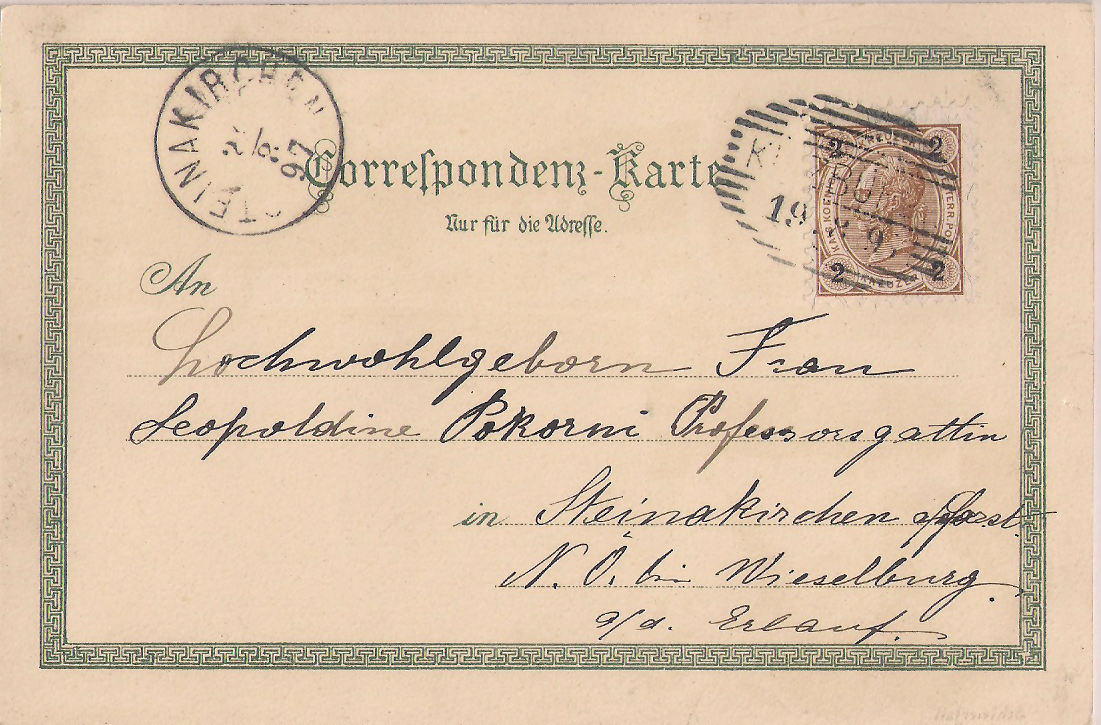 STEINAKIRCHEN
97
Correspondenz-Karte
Nur für die Adresse.
2 2
19 9
2 2
An
Hochwohlgeborn Frau
Leopoldine Pokorni Professorsgattin
in Steinakirchen
N. Ö. bei Wieselburg
a/d. Erlauf.